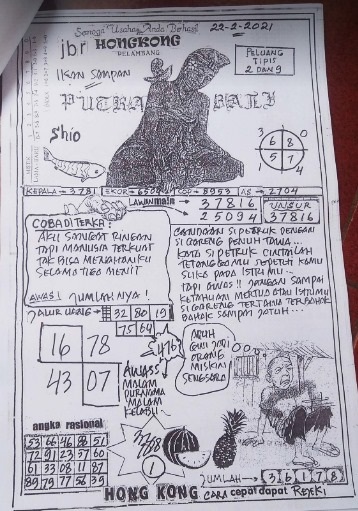 Semoga Usaha Anda Berhasil
22-2-2021
jbr HONGKONG
DELAMBANG
IKAN SAMPAN
PELUANG
TIPIS
2 DAN 9
PUTRA BALI
Shio
3 6 0
6 8
5 7
1 4
KEPALA → 3781 EKOR → 6504 COP → 8953 AS → 2704
LAWAN main → 37816
25094
UNSUR
37816
COBA DITERKA:
AKU SANGAT RINGAN
TAPI MANUSIA TERKUAT
TAK BISA MENAHANKU
SELAMA TIGA MENIT
CANDAAN SI PETRUK DENGAN
SI GORENG PENUH TAWA...
KATA SI PETRUK CINTAILAH
TETANGGAMU SEPERTI KAMU
SUKA PADA ISTRIMU...
TAPI AWAS!! JANGAN SAMPAI
KETAHUAN MERTUA ATAU ISTRIMU
SI GORENG TERTAWA TERBAHAK
BAHAK SAMPAI JATUH...
AWAS! JUMLAHNYA!
JALUR UANG → 32 80 19
75 64
16 78
43 07
476
AWASS
MALAM
PURNAMA
MALAM
KELABU
ADUH
JADI
ORANG
MISKIN
SENGSARA
angka rasional
53 66 46 98 51
72 91 23 37 60
61 33 08 11 87
89 79 77 56 39
1
JUMLAH → 3 6 1 7 8
HONG KONG CARA cepat dapat REJEKI